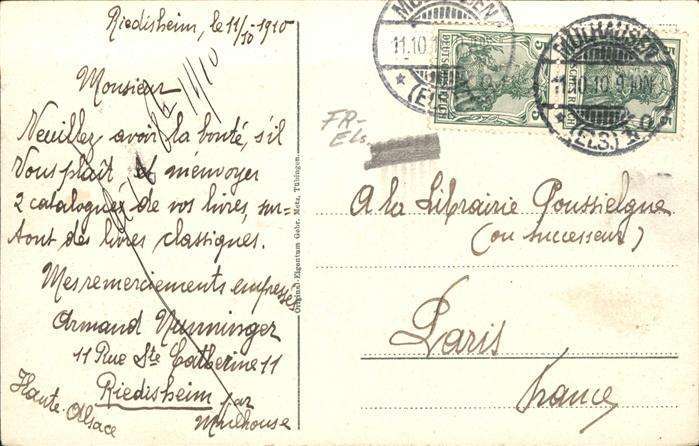 Riedisheim, le 11/10 1910
Monsieur
Veuillez avoir la bonté, s'il
vous plaît et m'envoyer
2 catalogues de vos livres, sur=
tout des livres classiques.
Mes remerciements empressés
Armand Nunninger
11 Rue Ste Catherine 11
Riedisheim par
Mulhouse
Haute-Alsace
11/10
Original-Eigentum Gebr. Metz, Tübingen.
FR-
Els.
MÜLHAUSEN
11.10.1
(ELS.)
5
5
MÜLHAUSEN
11.10.10.9-10V
(ELS.)
5
5
A la Librairie Poussielgue
(ou successeur)
Paris
France